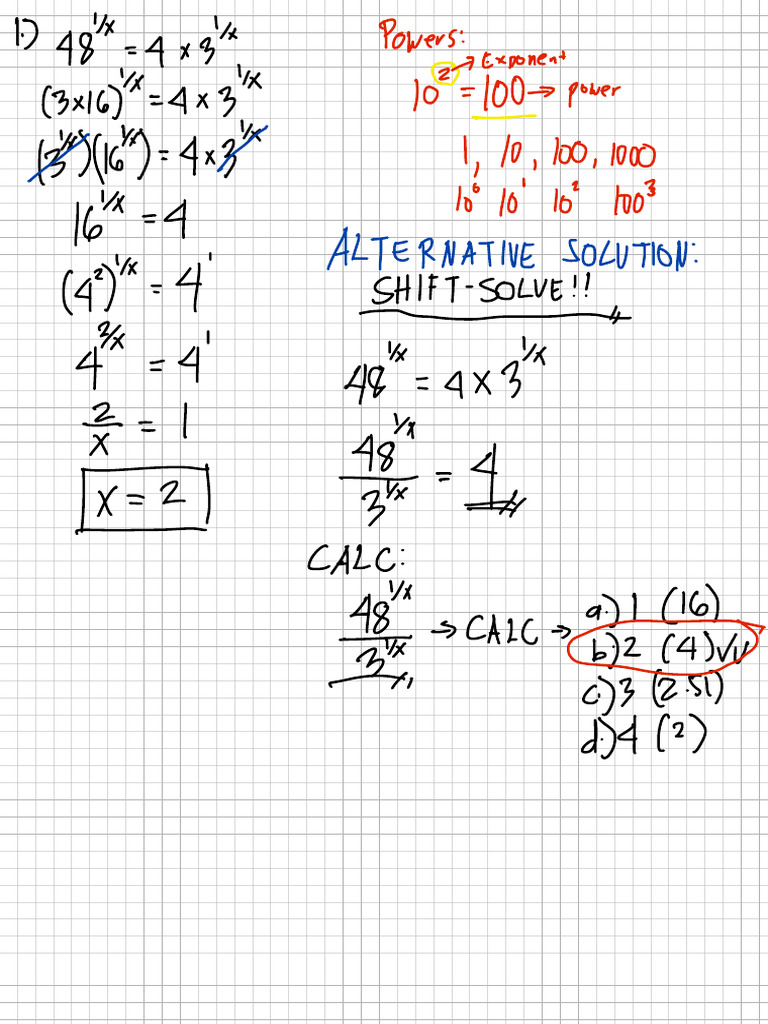 1.) 48^(1/x) = 4 × 3^(1/x)
(3×16)^(1/x) = 4 × 3^(1/x)
(3^(1/x))(16^(1/x)) = 4 × 3^(1/x)
16^(1/x) = 4
(4^2)^(1/x) = 4^1
4^(2/x) = 4^1
2/x = 1
x = 2
Powers:
Exponent
10^2 = 100 → power
1, 10, 100, 1000
10^0 10^1 10^2 100^3
ALTERNATIVE SOLUTION:
SHIFT-SOLVE!!
48^(1/x) = 4 × 3^(1/x)
48^(1/x) / 3^(1/x) = 4
CALC:
48^(1/x) / 3^(1/x) → CALC →
a.) 1 (16)
b.) 2 (4) √√
c.) 3 (2.51)
d.) 4 (2)